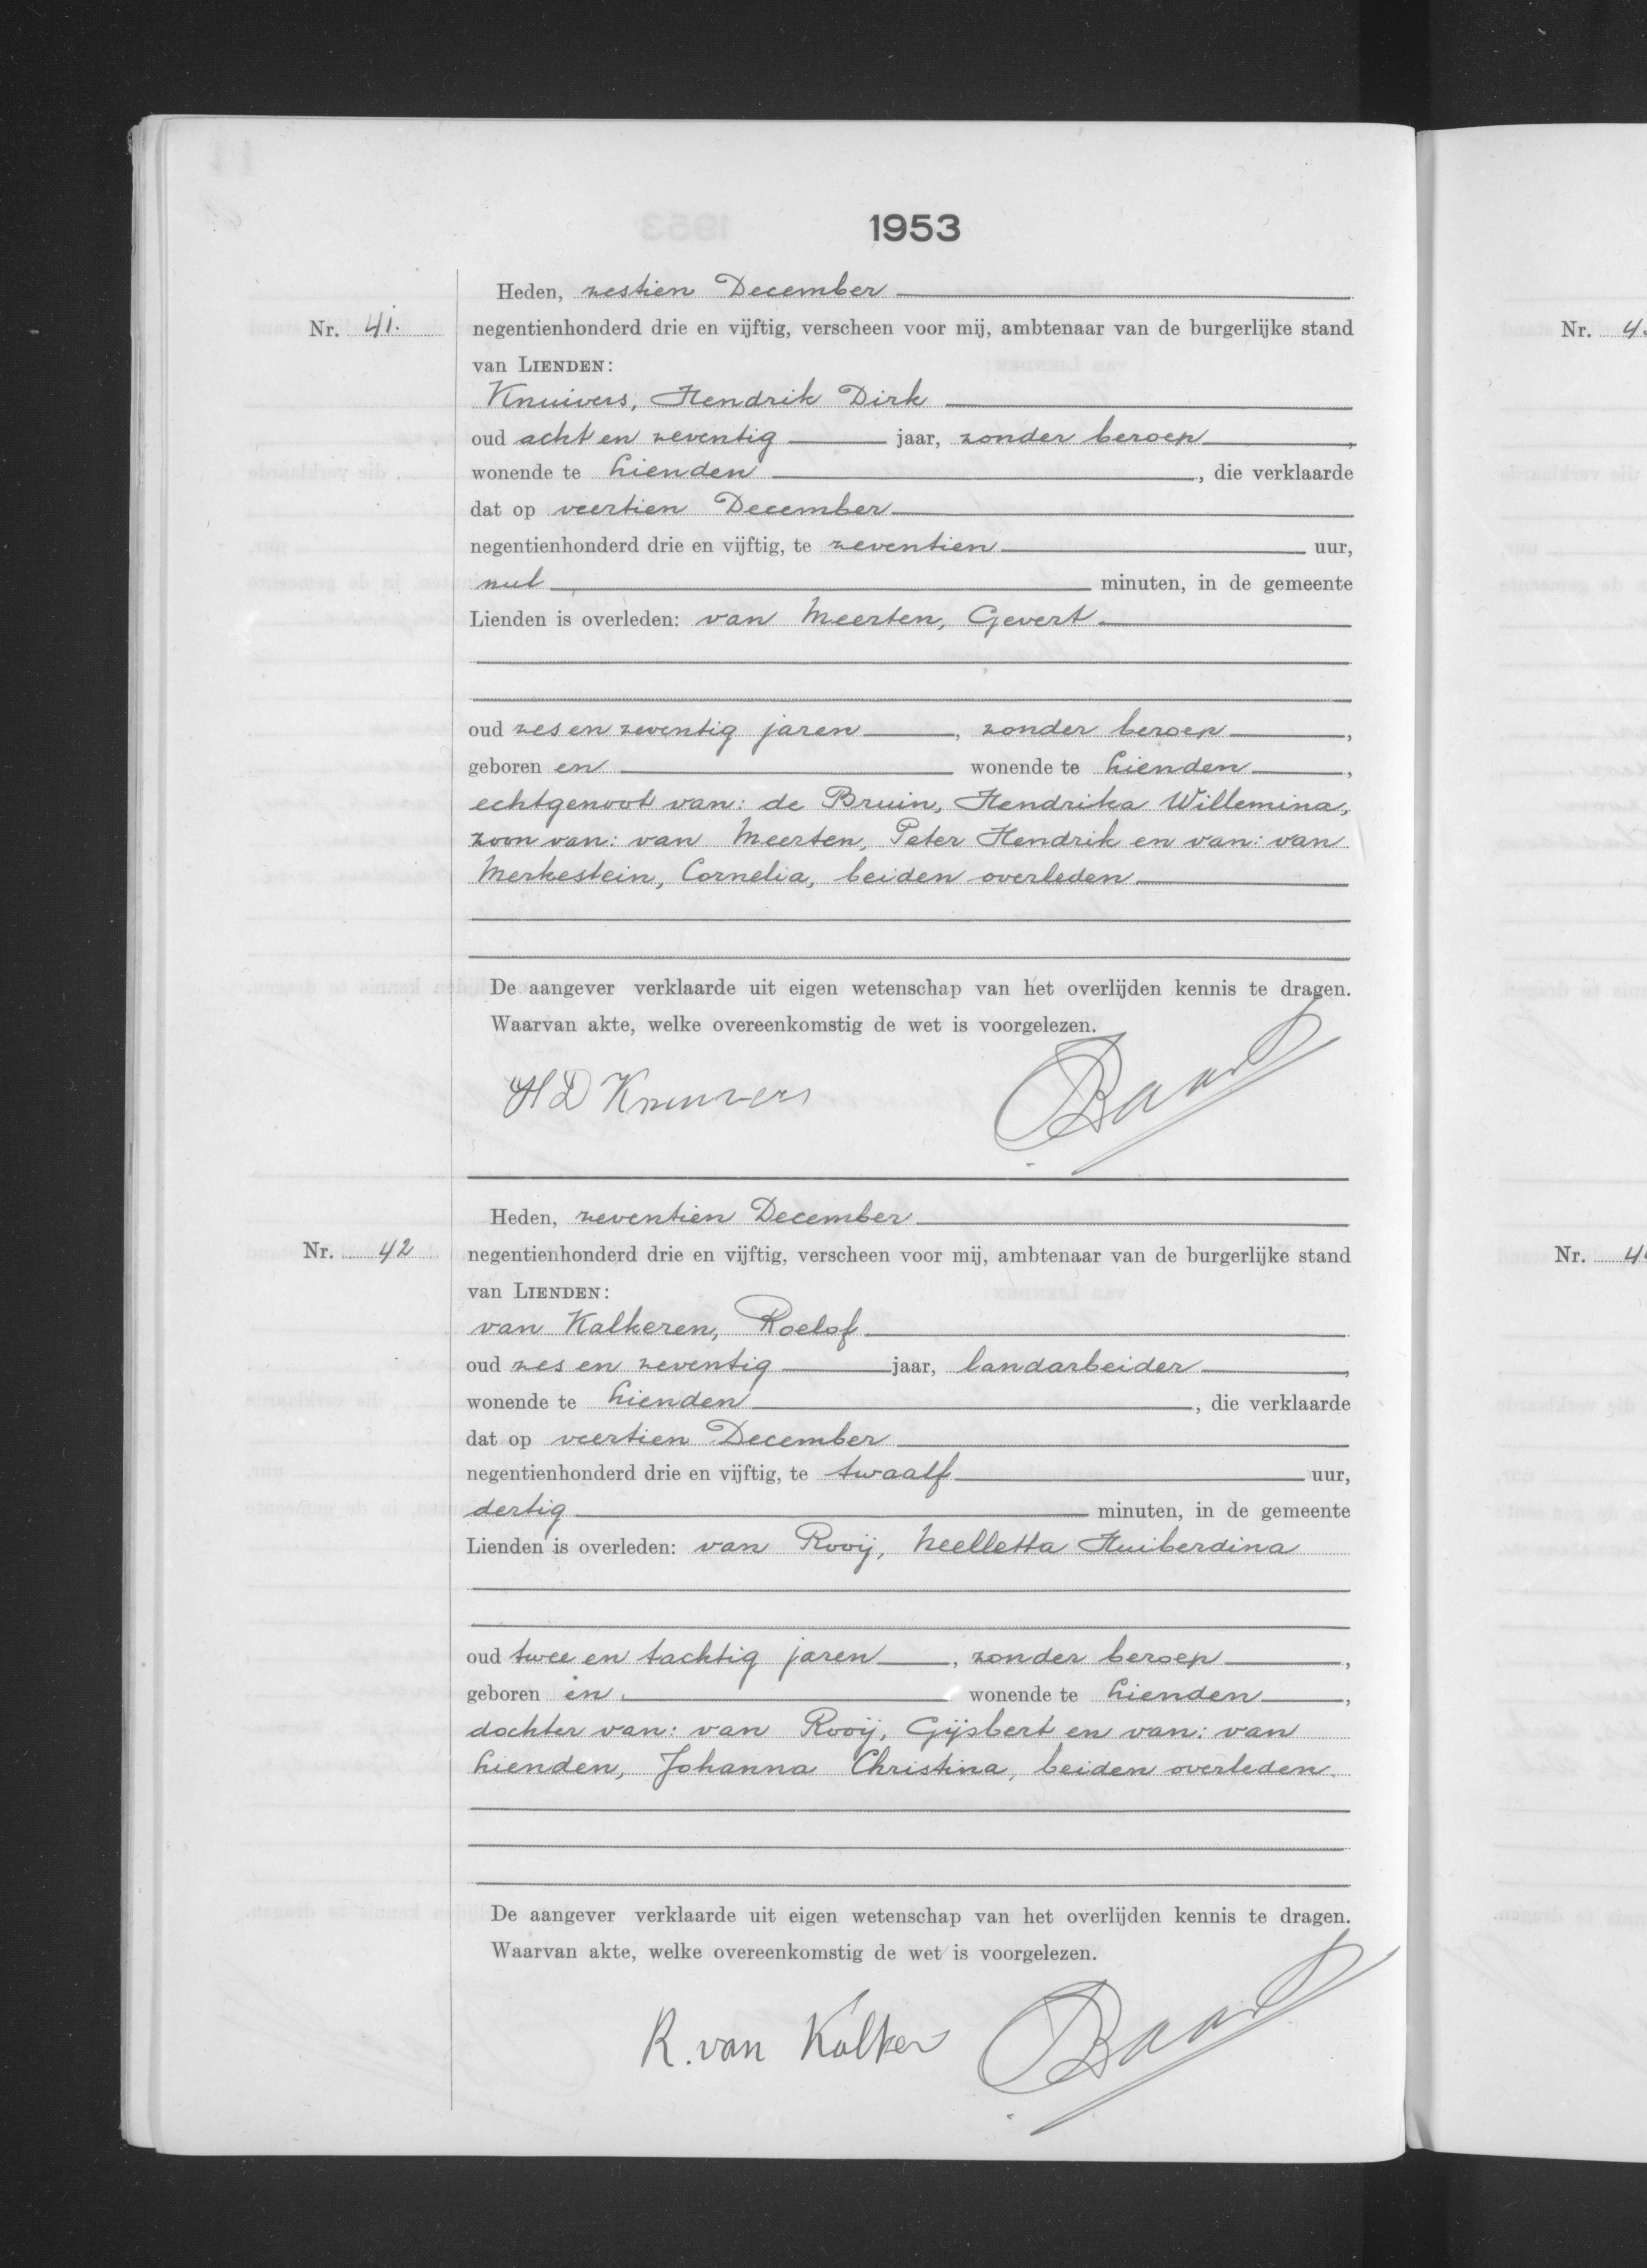 1953
Heden, zestien December
Nr. 41.
negentienhonderd drie en vijftig, verscheen voor mij, ambtenaar van de burgerlijke stand
van LIENDEN:
Knuivers, Hendrik Dirk
oud acht en zeventig jaar, zonder beroep,
wonende te Lienden, die verklaarde
dat op veertien December
negentienhonderd drie en vijftig, te zeventien uur,
nul minuten, in de gemeente
Lienden is overleden: van Meerten, Gevert
oud zes en zeventig jaren, zonder beroep,
geboren en wonende te Lienden,
echtgenoot van: de Bruin, Hendrika Willemina,
zoon van: van Meerten, Peter Hendrik en van: van
Merkestein, Cornelia, beiden overleden
De aangever verklaarde uit eigen wetenschap van het overlijden kennis te dragen.
Waarvan akte, welke overeenkomstig de wet is voorgelezen.
H D Knuivers
Heden, zeventien December
Nr. 42
negentienhonderd drie en vijftig, verscheen voor mij, ambtenaar van de burgerlijke stand
van LIENDEN:
van Kalkeren, Roelof
oud zes en zeventig jaar, landarbeider,
wonende te Lienden, die verklaarde
dat op veertien December
negentienhonderd drie en vijftig, te twaalf uur,
dertig minuten, in de gemeente
Lienden is overleden: van Rooij, Neelletta Huiberdina
oud twee en tachtig jaren, zonder beroep,
geboren en wonende te Lienden,
dochter van: van Rooij, Gijsbert en van: van
Lienden, Johanna Christina, beiden overleden.
De aangever verklaarde uit eigen wetenschap van het overlijden kennis te dragen.
Waarvan akte, welke overeenkomstig de wet is voorgelezen.
R. van Kalker
Nr. 4
Nr. 4